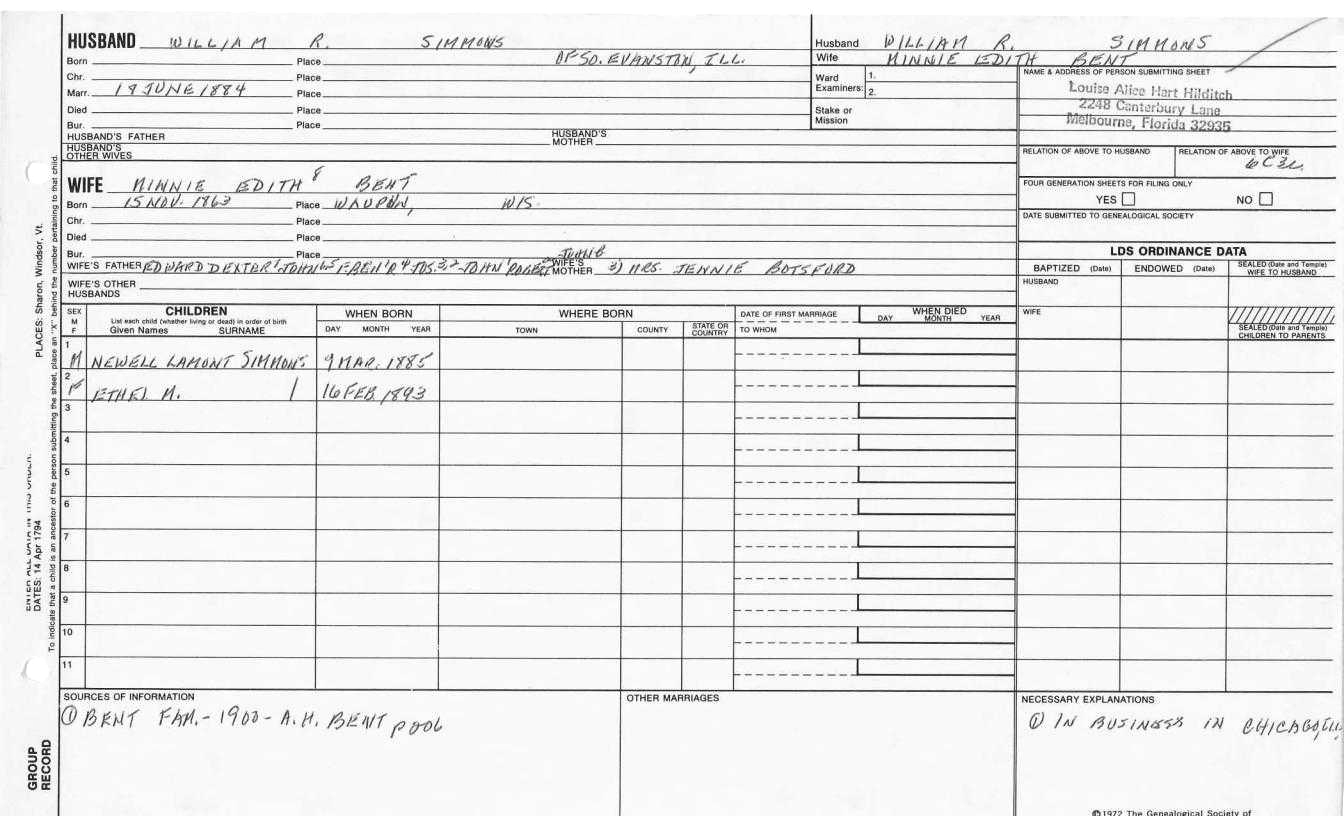 HUSBAND WILLIAM R. SIMMONS
Born Place OF SO. EVANSTON, ILL.
Chr. Place
Marr. 18 JUNE 1884 Place
Died Place
Bur. Place
HUSBAND'S FATHER HUSBAND'S MOTHER
HUSBAND'S OTHER WIVES
Husband WILLIAM R. SIMMONS
Wife MINNIE EDITH BENT
Ward Examiners: 1.
2.
Stake or Mission
NAME & ADDRESS OF PERSON SUBMITTING SHEET
Louise Alice Hart Hilditch
2248 Canterbury Lane
Melbourne, Florida 32935
RELATION OF ABOVE TO HUSBAND RELATION OF ABOVE TO WIFE
FOUR GENERATION SHEETS FOR FILING ONLY
YES NO
DATE SUBMITTED TO GENEALOGICAL SOCIETY
WIFE MINNIE EDITH 8 BENT
Born 15 NOV. 1863 Place WAUPUN, WIS.
Chr. Place
Died Place
Bur. Place
WIFE'S FATHER EDWARD DEXTER 7 JOHN WIFE'S MOTHER 3) MRS. JENNIE BOTSFORD
WIFE'S OTHER HUSBANDS
LDS ORDINANCE DATA
BAPTIZED (Date) ENDOWED (Date) SEALED (Date and Temple) WIFE TO HUSBAND
HUSBAND
WIFE
SEALED (Date and Temple) CHILDREN TO PARENTS
SEX M F
CHILDREN
List each child (whether living or dead) in order of birth
Given Names SURNAME
WHEN BORN
DAY MONTH YEAR
WHERE BORN
TOWN COUNTY STATE OR COUNTRY
DATE OF FIRST MARRIAGE
TO WHOM
WHEN DIED
DAY MONTH YEAR
1
M NEWELL LAMONT SIMMONS 9 MAR. 1885
2
F ETHEL M. 16 FEB. 1893
3
4
5
6
7
8
9
10
11
SOURCES OF INFORMATION
① BENT FAM. - 1900 - A.H. BENT
OTHER MARRIAGES
NECESSARY EXPLANATIONS
① IN BUSINESS IN CHICAGO, ILL.
©1972 The Genealogical Society of
PLACES: Sharon, Windsor, Vt.
To indicate that a child is an ancestor of the person submitting the sheet, place an "X" behind the number pertaining to that child.
ENTER ALL DATA IN THIS ORDER:
DATES: 14 Apr 1794
GROUP RECORD